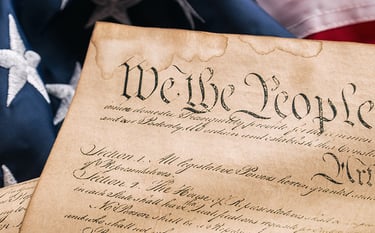 We the People
insure domestic Tranquility, provide for the
and our Posterity, do ordain and establish this Cons
Art
Section 1. All legislative Powers herein granted
of Representatives.
Section 2. The House of Representatives shall be
in each State shall have the Qualifications requisite
No Person shall be a
and who shall not